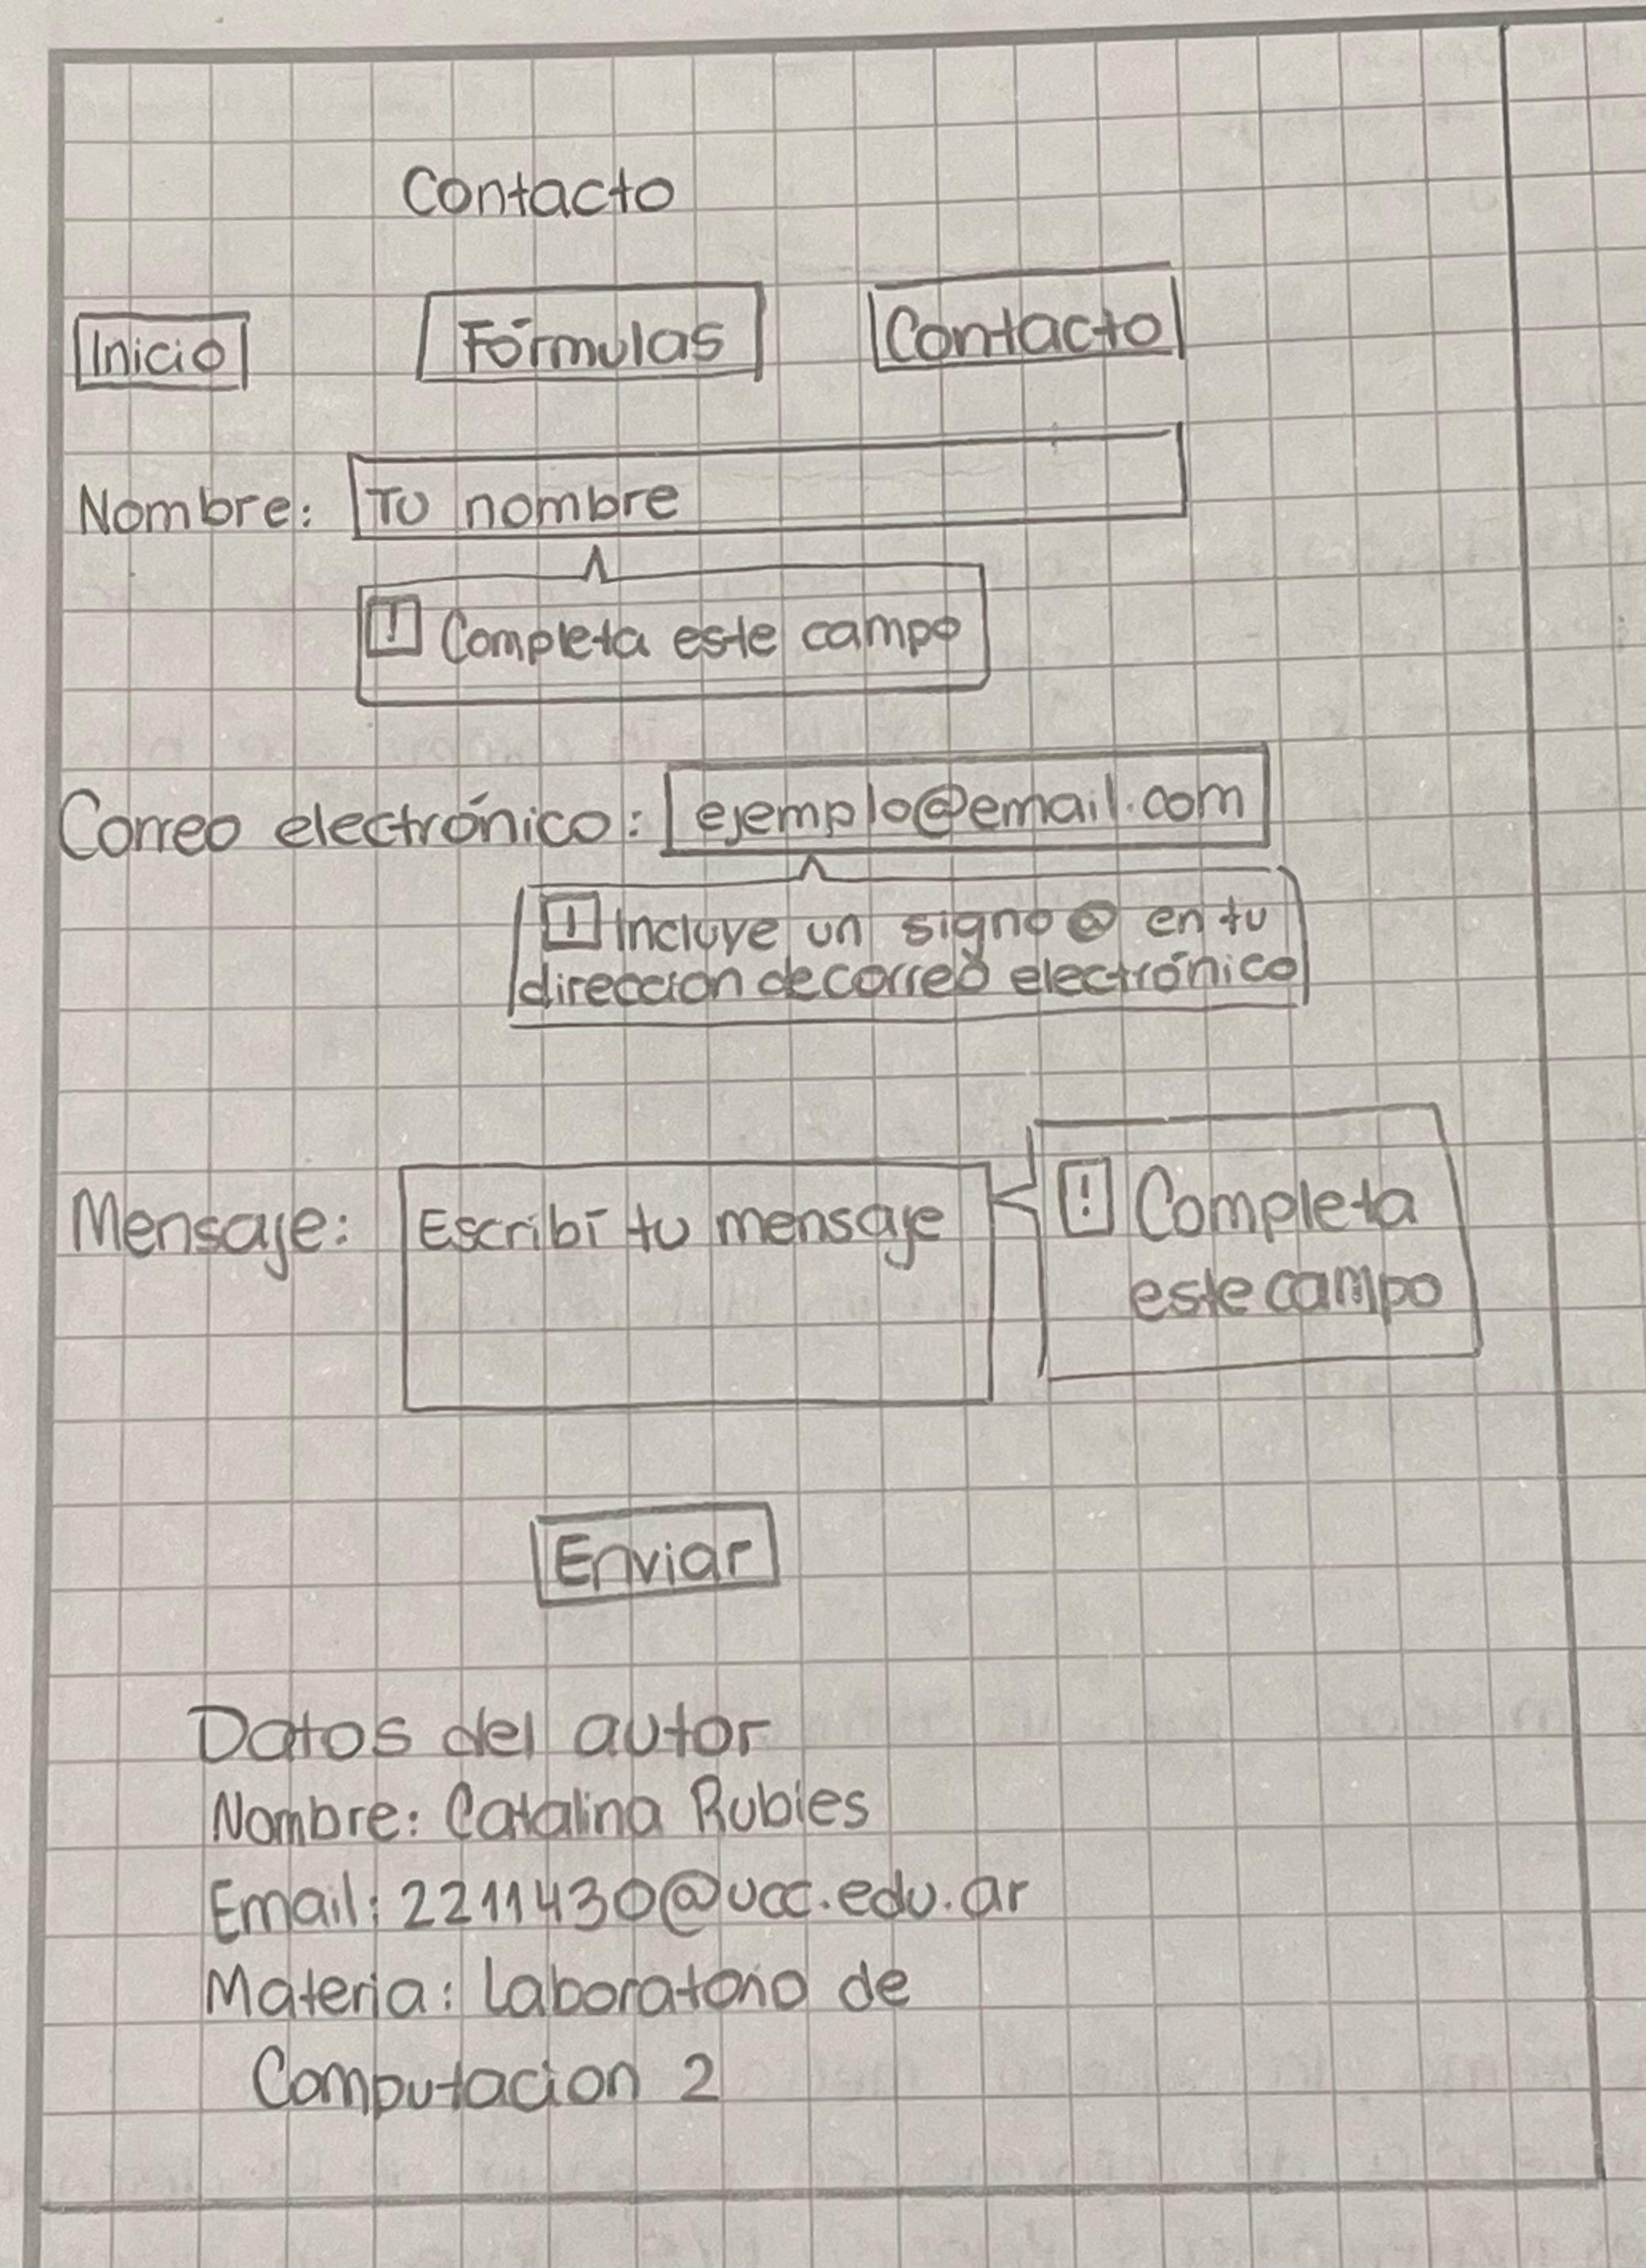 Contacto
Inicio Fórmulas Contacto
Nombre: Tu nombre
! Completa este campo
Correo electrónico: ejemplo@email.com
! Incluye un signo @ en tu
direccion de correo electrónico
Mensaje: Escribí tu mensaje
! Completa
este campo
Enviar
Datos del autor
Nombre: Catalina Rubies
Email: 2211430@ucc.edu.ar
Materia: Laboratorio de
Computacion 2